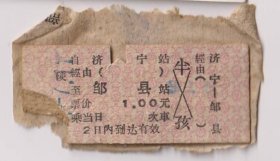 自济宁站
經由(    )
至邹县站
票价 1.00元
乘当日 次車
2日内到达有效
半
孩
济宁—邹县
經由(    )